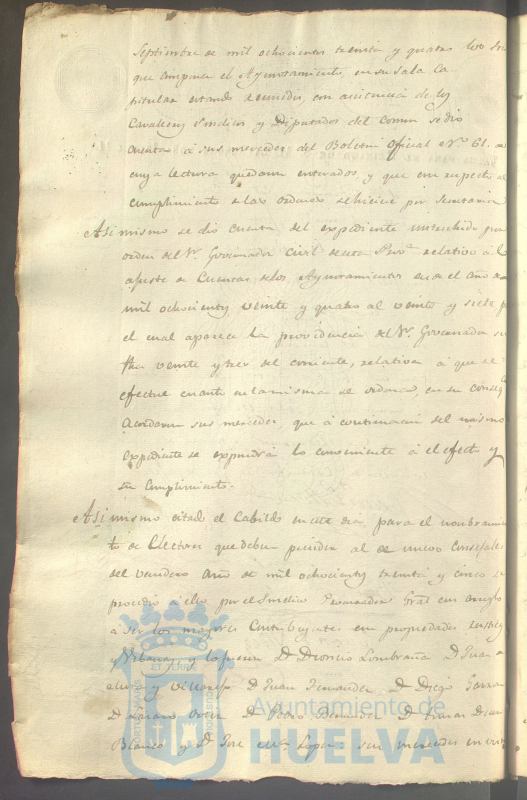 Septiembre de mil ochocientos treinta y quatro los Sres
que componen el Ayuntamiento, en su Sala Ca-
pitular estando reunidos, con asistencia de los
Cavalleros Sindicos y Diputados del comun se dio
cuenta á sus mercedes del Boletin Oficial Nº 61. de
cuya lectura quedaron enterados, y que con respecto al
cumplimiento de las ordenes se hiciese por Secretaria
Asi mismo se dio cuenta del expediente instruhido por
orden del Sr. Governador Civil de esta Prova relativo á la
de Cuentas de los Ayuntamientos desde el año de
mil ochocientos veinte y quatro al veinte y siete
el cual aparece la providencia del Sr. Governador su
fha veinte y tres del corriente, relativa á que se
efectue cuanto en la misma se ordena, en su conseqª
Acordaron sus mercedes que á continuacion del mismo
expediente se expondrá lo conveniente á el efecto y
su cumplimiento.
Asi mismo citado el Cabildo en este dia para el nombramien
to de Electores que deben proceder al de nuevos Consejales
del venidero año de mil ochocientos treinta y cinco se
procedio á ello por el Sindico Personero Gral con arreglo
á ser los mayores Contribuyentes en propiedades rusticas
y Urbanas y lo fueron Dn Dionicio Lombraña Dn Juan
y Villaseñor Dn Juan Fernandez Dn Diego Garzon
Dn Dn Pedro Bermudez Dn Tomas
Blanco y Dn Jose Lopez: sus mercedes
Ayuntamiento de
HUELVA